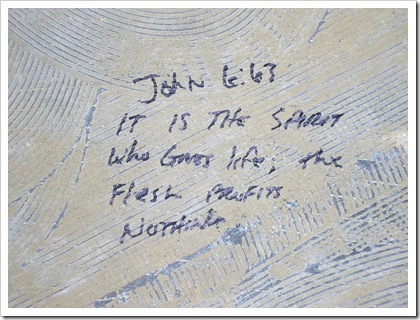 John 6:63
IT IS THE SPIRIT
who Gives life; the
Flesh PROFITS
NOTHING